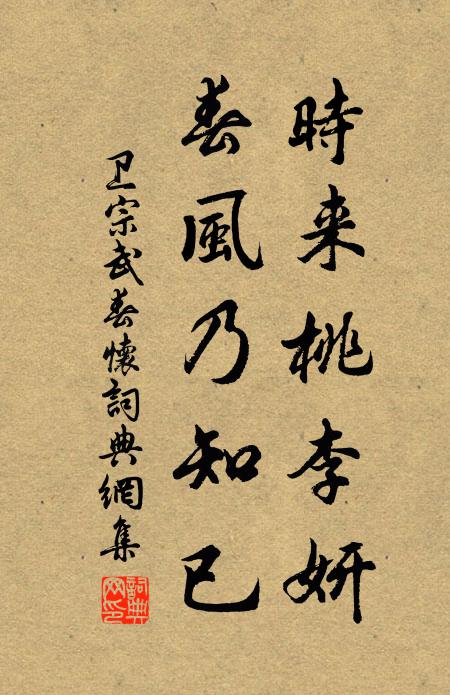 時来桃李妍
春風乃知己
卫宗武春懷詞典網集
詞典网印